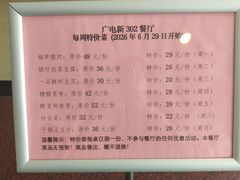 广电新 302 餐厅
每周特价菜 (2026 年 6 月 29 日开始)
烟笋腊肉: 原价 48 元/份 特价: 29 元/份 (周一)
锅仔白菜豆腐: 原价 36 元/份 特价: 25 元/份 (周二)
一品鲜虾豆花: 原价 36 元/份 特价: 22 元/份 (周三)
糖醋里脊: 原价 42 元/份 特价: 28 元/份 (周四)
原价 52 元/份 特价: 39 元/份 (周五)
炒合菜: 原价 32 元/份 特价: 20 元/份 (周六)
干锅土豆片: 原价 36 元/份 特价: 22 元/份 (周日)
温馨提示: 特价菜每桌仅限一份, 不参与餐厅的任何优惠活动。本餐厅
菜品无预制! 菜品售出, 概不退换!